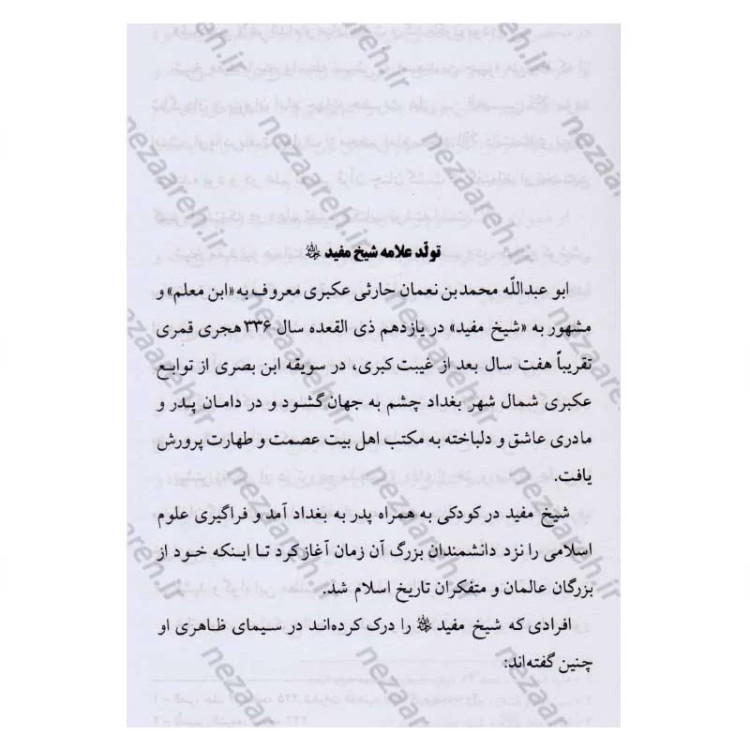 تولّد علامه شیخ مفید
ابو عبداللّه محمد بن نعمان حارثی عکبری معروف به «ابن معلم» و
مشهور به «شیخ مفید» در یازدهم ذی القعده سال ۳۳۶ هجری قمری
تقریباً هفت سال بعد از غیبت کبری، در سویقه ابن بصری از توابع
عکبری شمال شهر بغداد چشم به جهان گشود و در دامان پدر و
مادری عاشق و دلباخته به مکتب اهل بیت عصمت و طهارت پرورش
یافت.
شیخ مفید در کودکی به همراه پدر به بغداد آمد و فراگیری علوم
اسلامی را نزد دانشمندان بزرگ آن زمان آغاز کرد تا اینکه خود از
بزرگان عالمان و متفکران تاریخ اسلام شد.
افرادی که شیخ مفید را درک کرده‌اند در سیمای ظاهری او
چنین گفته‌اند:
nezaareh.ir